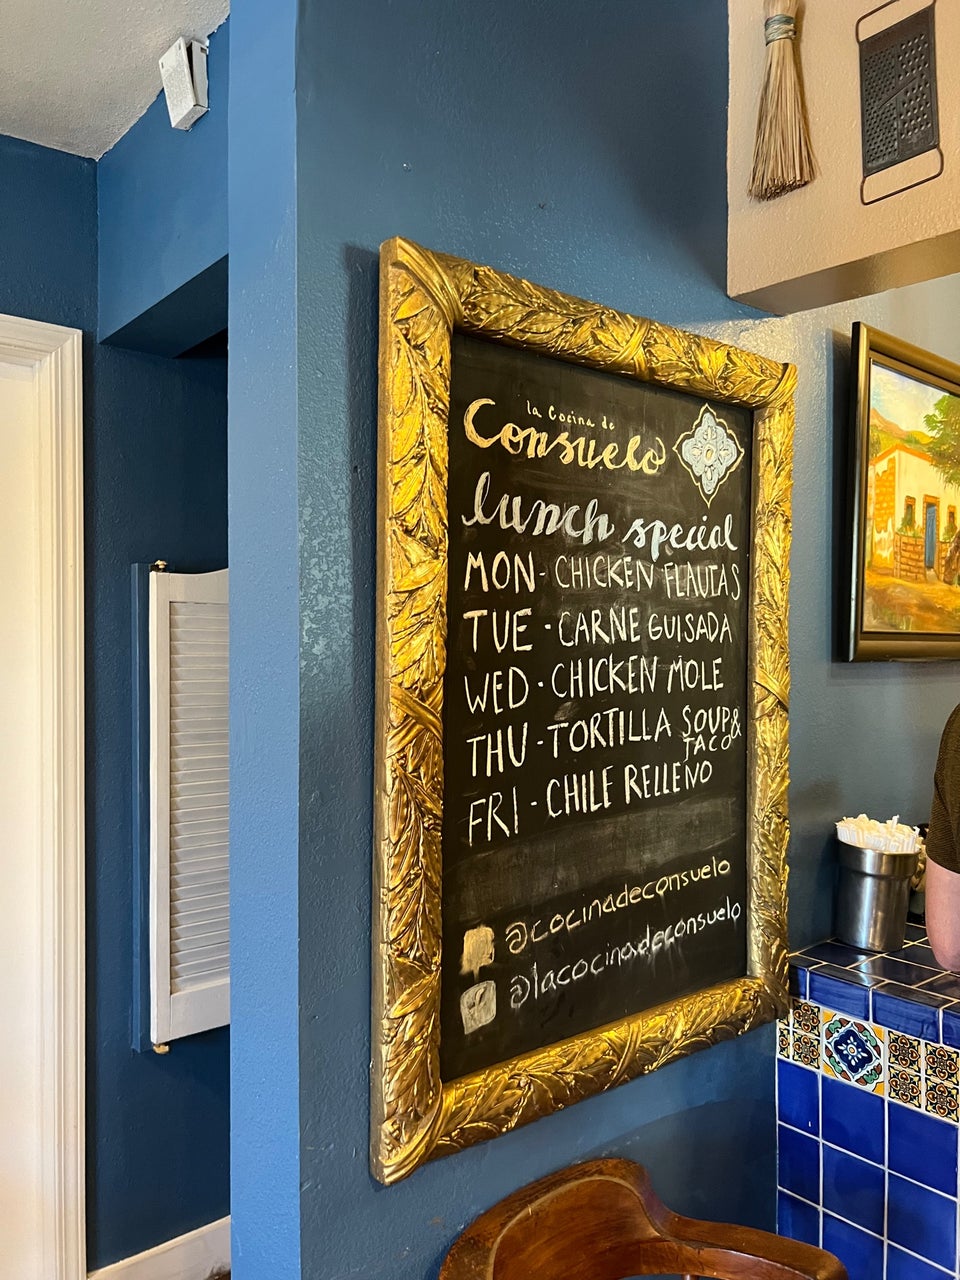 la Cocina de
Consuelo
lunch special
MON - CHICKEN FLAUTAS
TUE - CARNE GUISADA
WED - CHICKEN MOLE
THU - TORTILLA SOUP &
TACO
FRI - CHILE RELLENO
@cocinadeconsuelo
@lacocinadeconsuelo